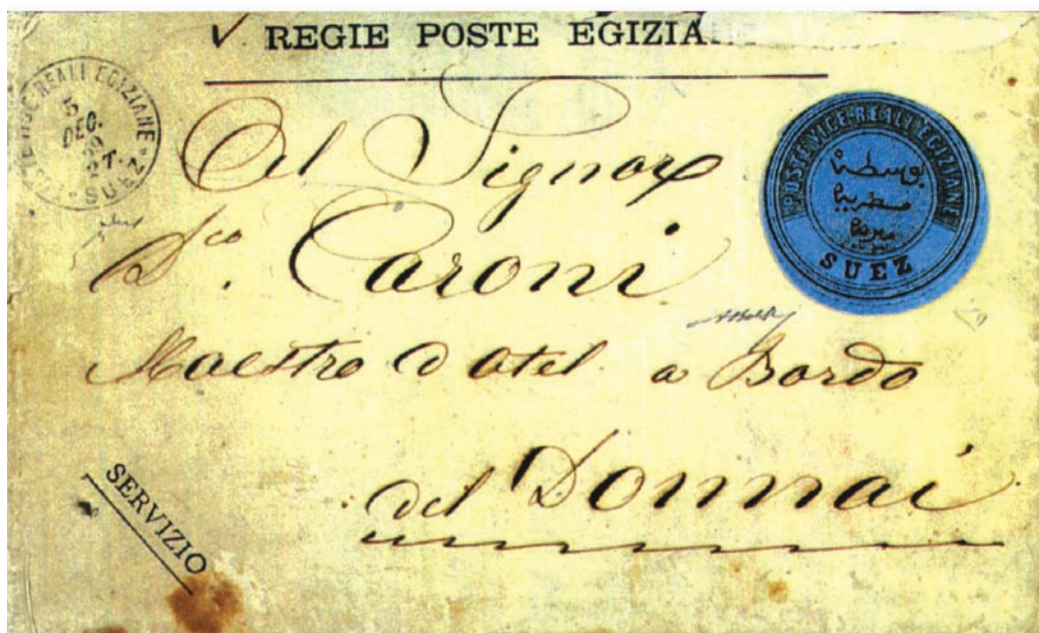 REGIE POSTE EGIZIA
POSTE VICE-REALI EGIZIANE
DEC.
SUEZ
POSTE VICE-REALI EGIZIANE
بوسطة
مصرية
SUEZ
Al Signor
Caroni
Maestro d'otel a Bordo
del Donnai
SERVIZIO